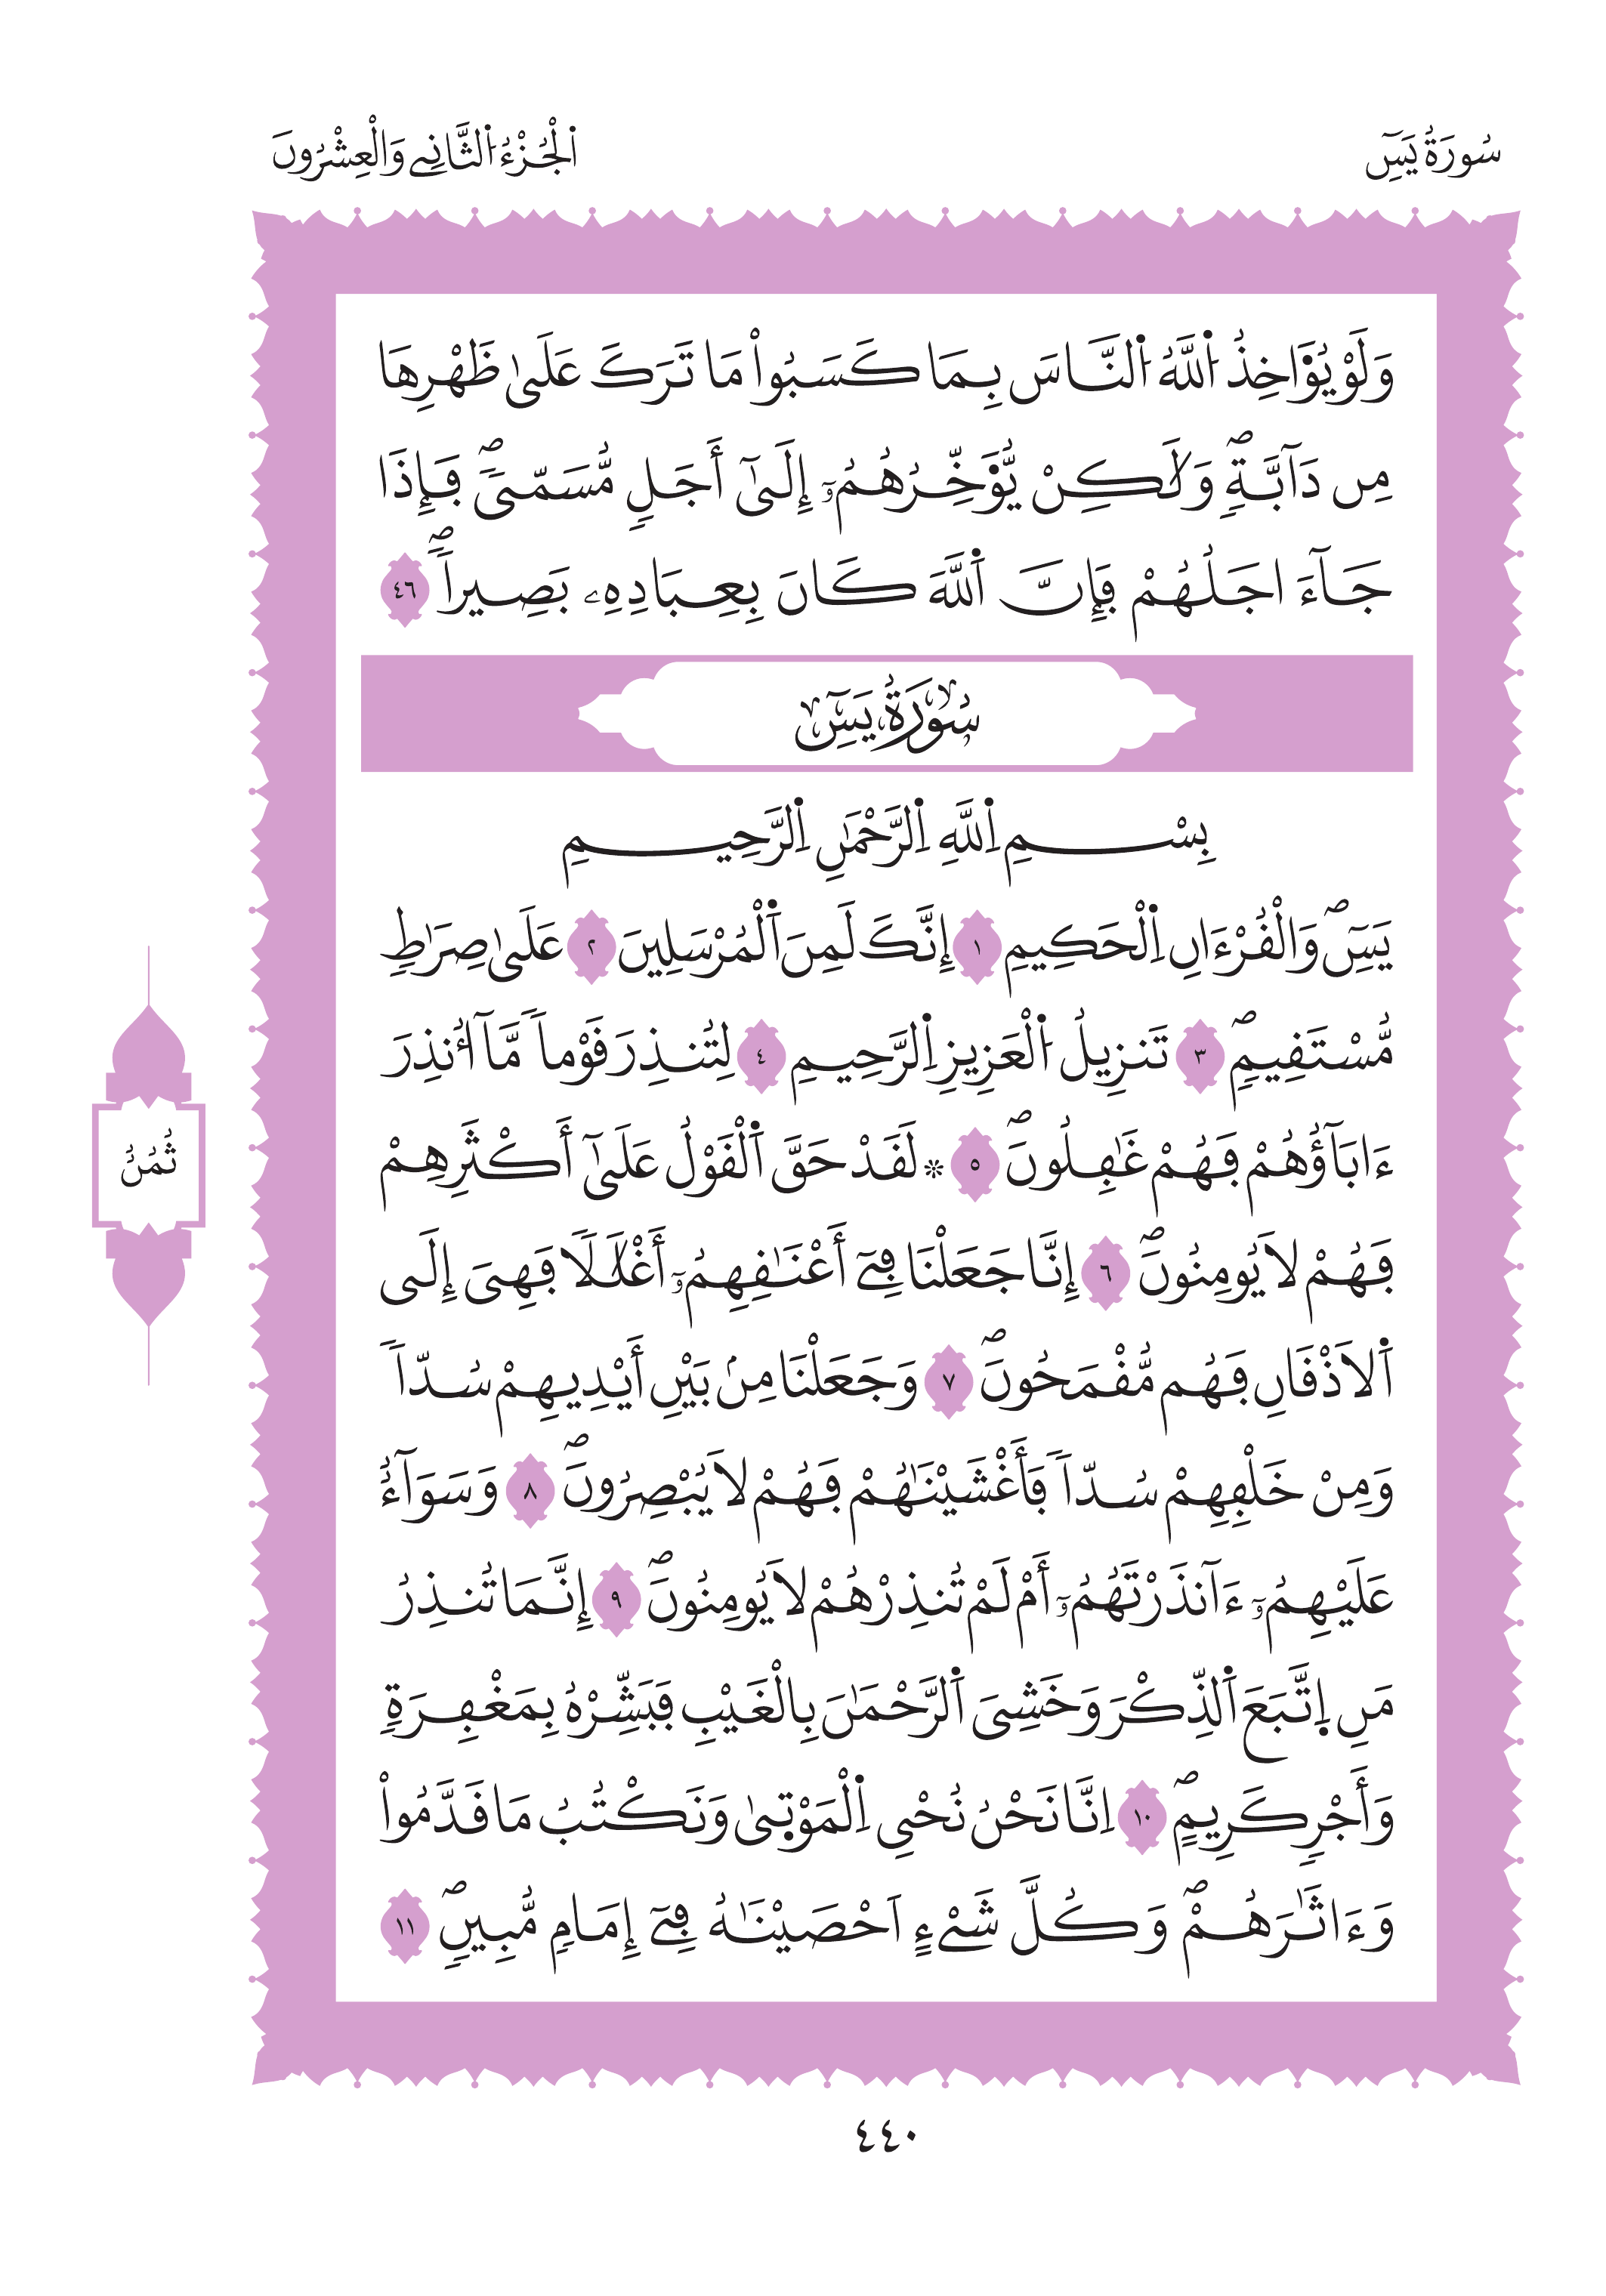 سُورَةُ يَسِٓ
اَ۬لْجُزْءُ اُ۬لثَّانِے وَالْعِشْرُونَ
وَلَوْ يُؤَٰخِذُ اُ۬للَّهُ اُ۬لنَّاسَ بِمَا كَسَبُواْ مَا تَرَكَ عَلَىٰ ظَهْرِهَا
مِن دَآبَّةٖۖ وَلَٰكِنْ يُّوَ۬خِّرُهُمُۥٓ إِلَىٰٓ أَجَلٖ مُّسَمّىٗۖ فَإِذَا
جَآءَ اجَلُهُمْ فَإِنَّ اَ۬للَّهَ كَانَ بِعِبَادِهِۦ بَصِيراٗۖ ٤٦
سُورَةُ يَسِٓ
بِسْمِ اِ۬للَّهِ اِ۬لرَّحْمَٰنِ اِ۬لرَّحِيمِ
يَسِٓۖ وَالْقُرْءَانِ اِ۬لْحَكِيمِ ١ إِنَّكَ لَمِنَ اَ۬لْمُرْسَلِينَ ٢ عَلَىٰ صِرَٰطٖ
مُّسْتَقِيمٖۖ ٣ تَنزِيلُ اُ۬لْعَزِيزِ اِ۬لرَّحِيمِ ٤ لِتُنذِرَ قَوْماٗ مَّآ أُنذِرَ
ءَابَآؤُهُمْ فَهُمْ غَٰفِلُونَۖ ٥ ۞ لَقَدْ حَقَّ اَ۬لْقَوْلُ عَلَىٰٓ أَكْثَرِهِمْ
فَهُمْ لَا يُومِنُونَۖ ٦ إِنَّا جَعَلْنَا فِےٓ أَعْنَٰقِهِمُۥٓ أَغْلَٰلاٗ فَهِىَ إِلَى
اَ۬لَاذْقَانِ فَهُم مُّقْمَحُونَۖ ٧ وَجَعَلْنَا مِنۢ بَيْنِ أَيْدِيهِمْ سُدّاٗ
وَمِنْ خَلْفِهِمْ سُدّاٗ فَأَغْشَيْنَٰهُمْ فَهُمْ لَا يُبْصِرُونَۖ ٨ وَسَوَآءٌ
عَلَيْهِمُۥٓ ءَآنذَرْتَهُمُۥٓ أَمْ لَمْ تُنذِرْهُمْ لَا يُومِنُونَۖ ٩ إِنَّمَا تُنذِرُ
مَنِ اِ۪تَّبَعَ اَ۬لذِّكْرَ وَخَشِىَ اَ۬لرَّحْمَٰنَ بِالْغَيْبِ فَبَشِّرْهُ بِمَغْفِرَةٖ
وَأَجْرٖ كَرِيمٍۖ ١٠ اِنَّا نَحْنُ نُحْىِ اِ۬لْمَوْت۪ىٰ وَنَكْتُبُ مَا قَدَّمُواْ
وَءَاثَٰرَهُمْۖ وَكُلَّ شَےْءٍ اَحْصَيْنَٰهُ فِےٓ إِمَامٖ مُّبِينٖۖ ١١
ثُمُنُ
٤٤٠